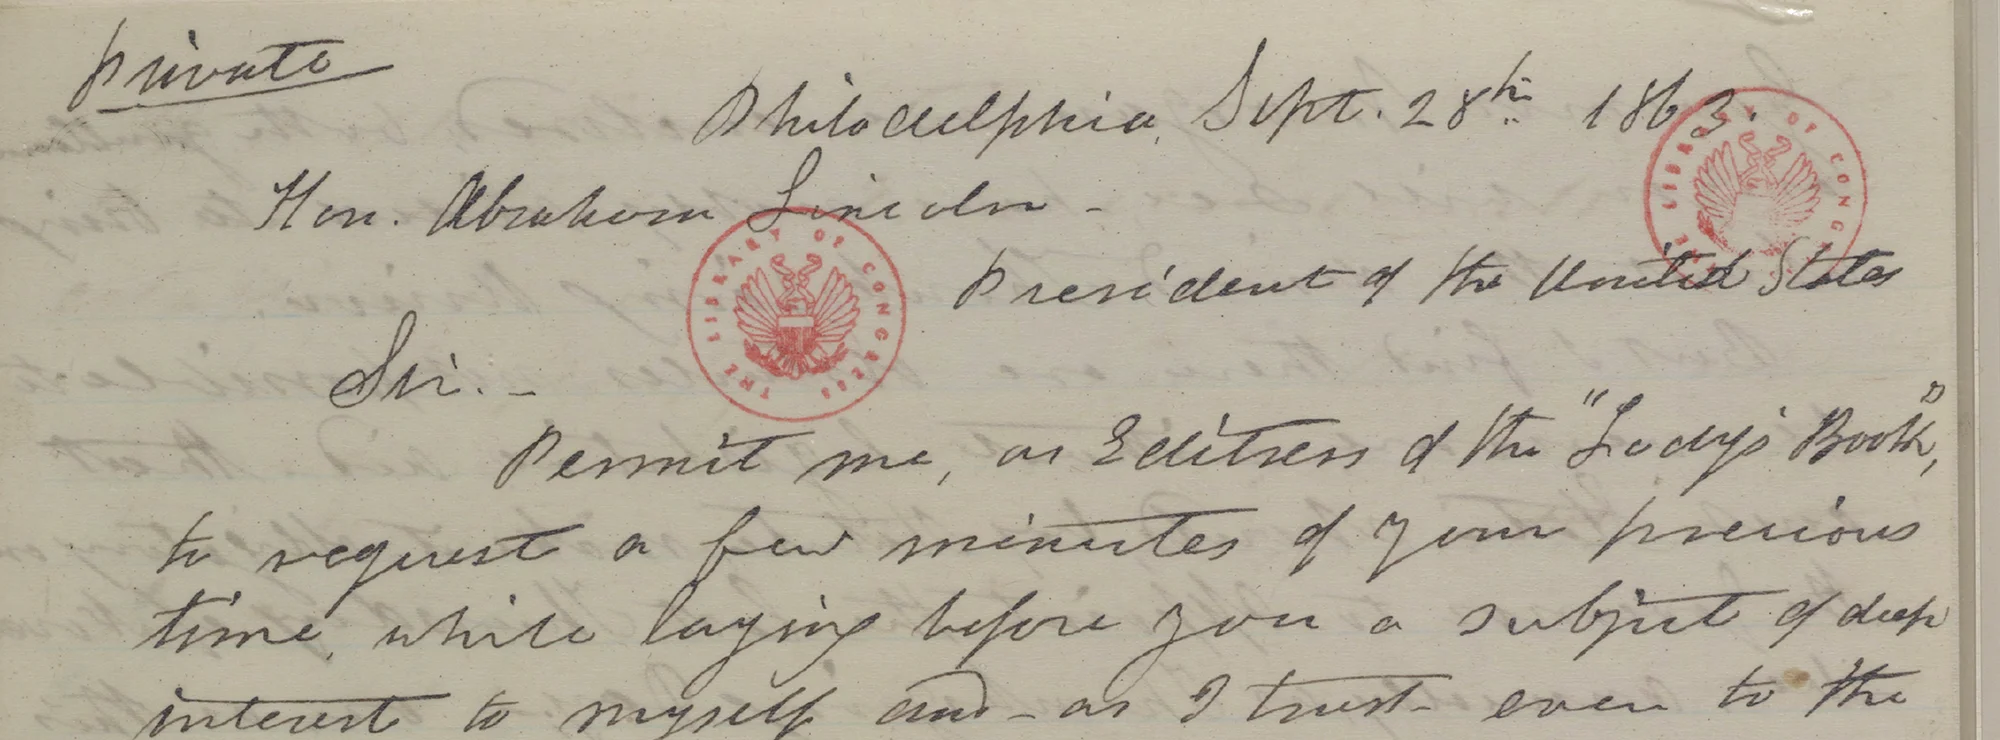 Private
Philadelphia, Sept. 28th 1863.
Hon. Abraham Lincoln -
President of the United States
Sir. -
Permit me, as Editress of the "Lady's Book",
to request a few minutes of your precious
time, while laying before you a subject of deep
interest to myself and - as I trust - even to the
THE LIBRARY OF CONGRESS
THE LIBRARY OF CONG